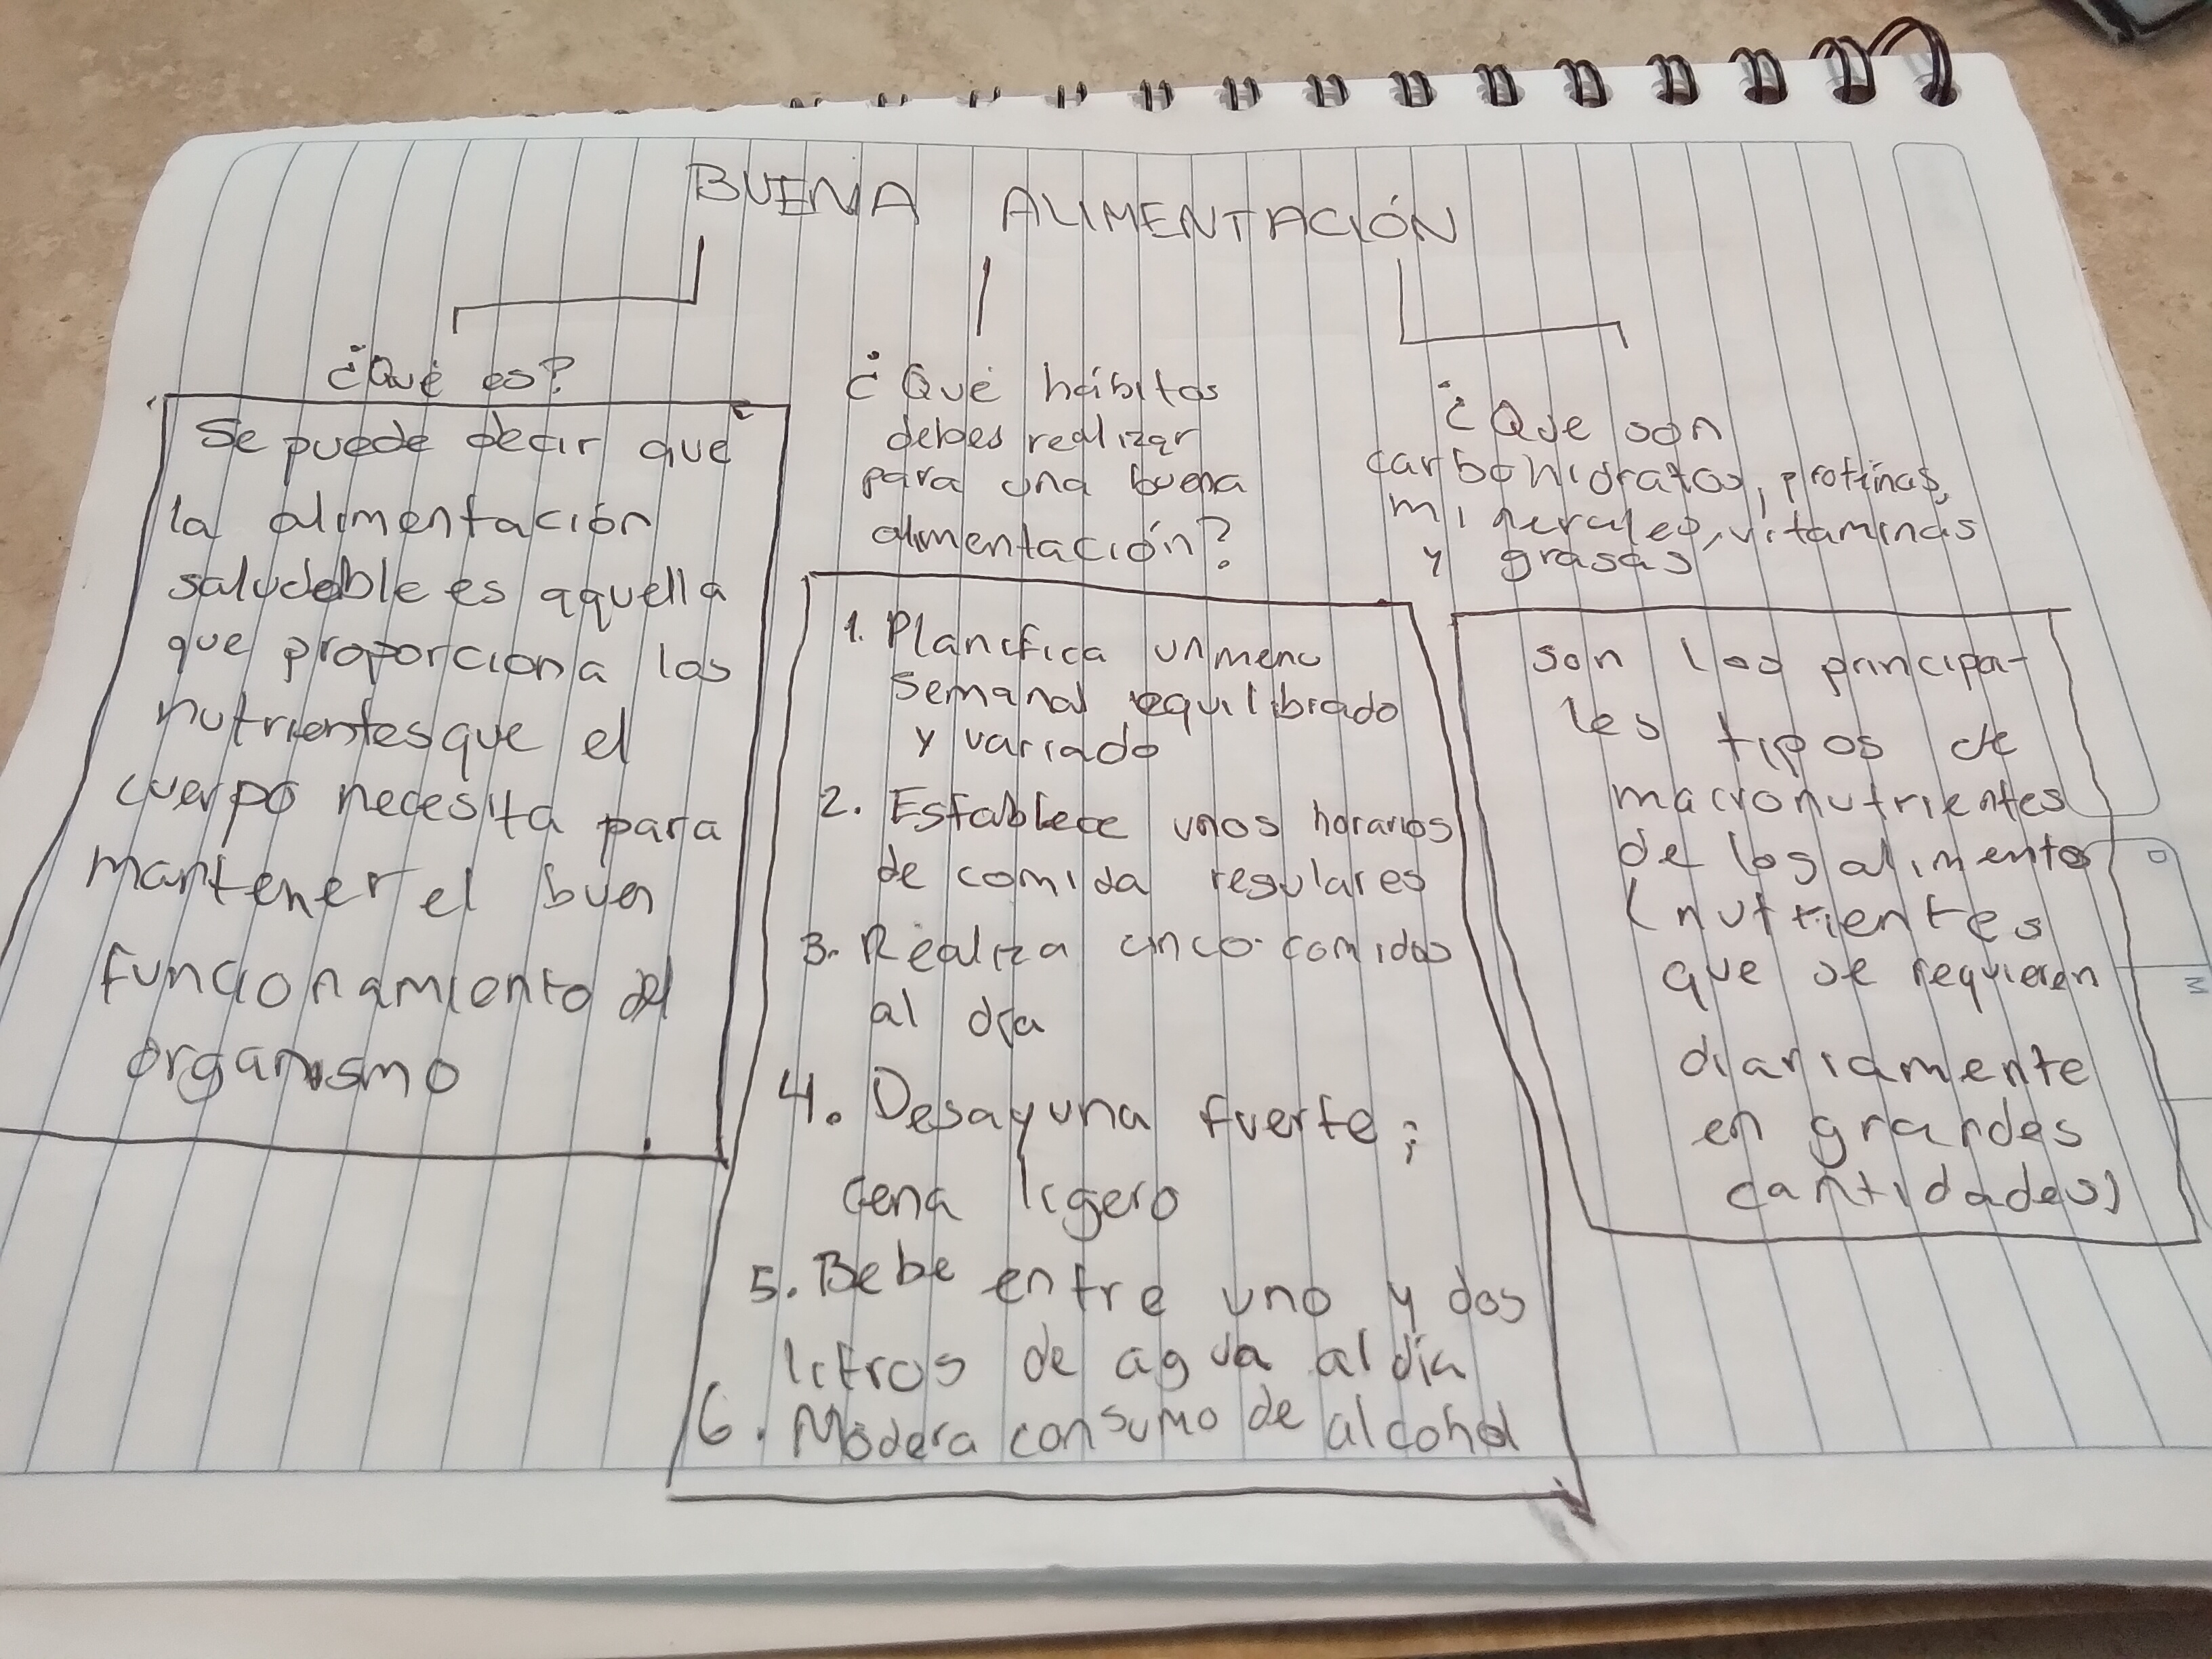 BUENA ALIMENTACIÓN
¿Qué es?
Se puede decir que
la alimentación
saludable es aquella
que proporciona los
nutrientes que el
cuerpo necesita para
mantener el buen
funcionamiento del
organismo
¿Qué hábitos
debes realizar
para una buena
alimentación?
1. Planifica un menu
semanal equilibrado
y variado
2. Establece unos horarios
de comida regulares
3. Realiza cinco comidas
al día
4. Desayuna fuerte;
cena ligero
5. Bebe entre uno y dos
litros de agua al día
6. Modera consumo de alcohol
¿Que son
carbohidratos, protínas,
minerales, vitaminas
y grasas
son los principa-
les tipos de
macronutrientes
de los alimentos
(nutrientes
que se requieren
diariamente
en grandes
cantidades)
D
M